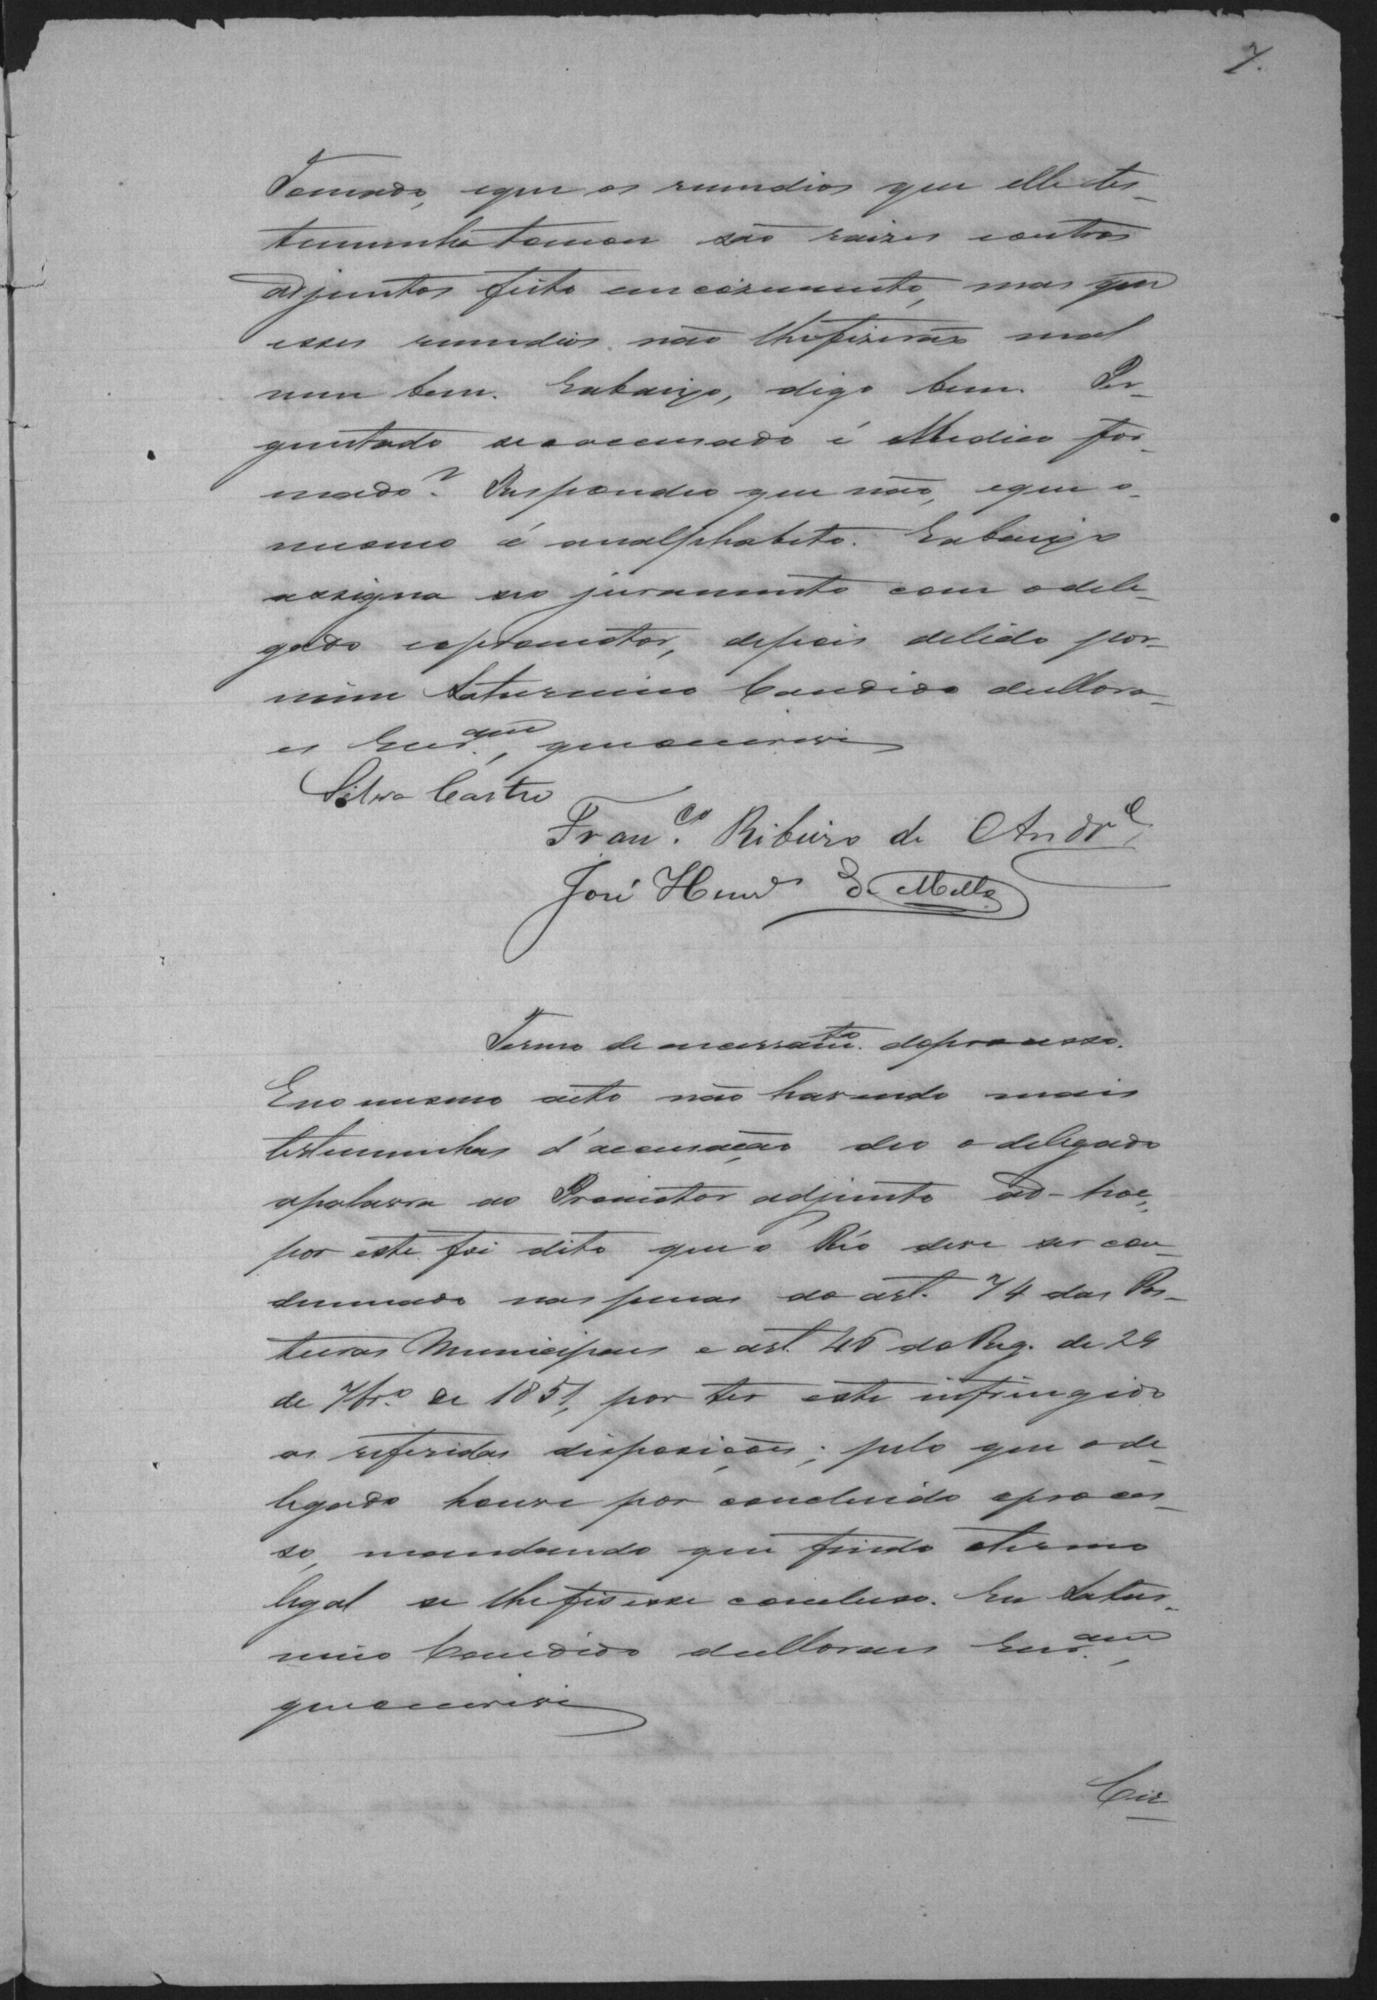 7.
Tomado, eque os remedios que elle tes-
temunha tomou são raizes eoutros
adjuntos feito em cozimento, mas que
esses remedios não lhefizerão mal
nem bem. Eabaixo, digo bem. Per-
guntado seoaccusado é Medico for-
mado? Respondeo que não, eque o
mesmo é analphabeto. Eabaixo
assigna seo juramento com odele-
gado eopromotor, depois delido por
mim Saturnino Candido deMora-
es Escr.am, queoescrevi
Silva Castro
Fran.co Ribeiro de Andr.e
José Henr.s de Mello
Termo de encerram.to doprocesso.
Eno mesmo acto não havendo mais
testemunhas d'accusação deo o delegado
apalavra ao Promotor adjunto ad-hoc,
por este foi dito que o Réo deve ser con-
demnado nas penas do art. 74 das Pos-
turas Municipaes e art. 46 do Reg. de 29
de 7br.o de 1851, por ter este infringido
as referidas disposições; pelo que ode-
legado houve por concluido oproces-
so, mandando que findo otermo
legal se lhefisesse concluso. Eu Satur-
nino Candido deMoraes Escr.am,
queoescrevi